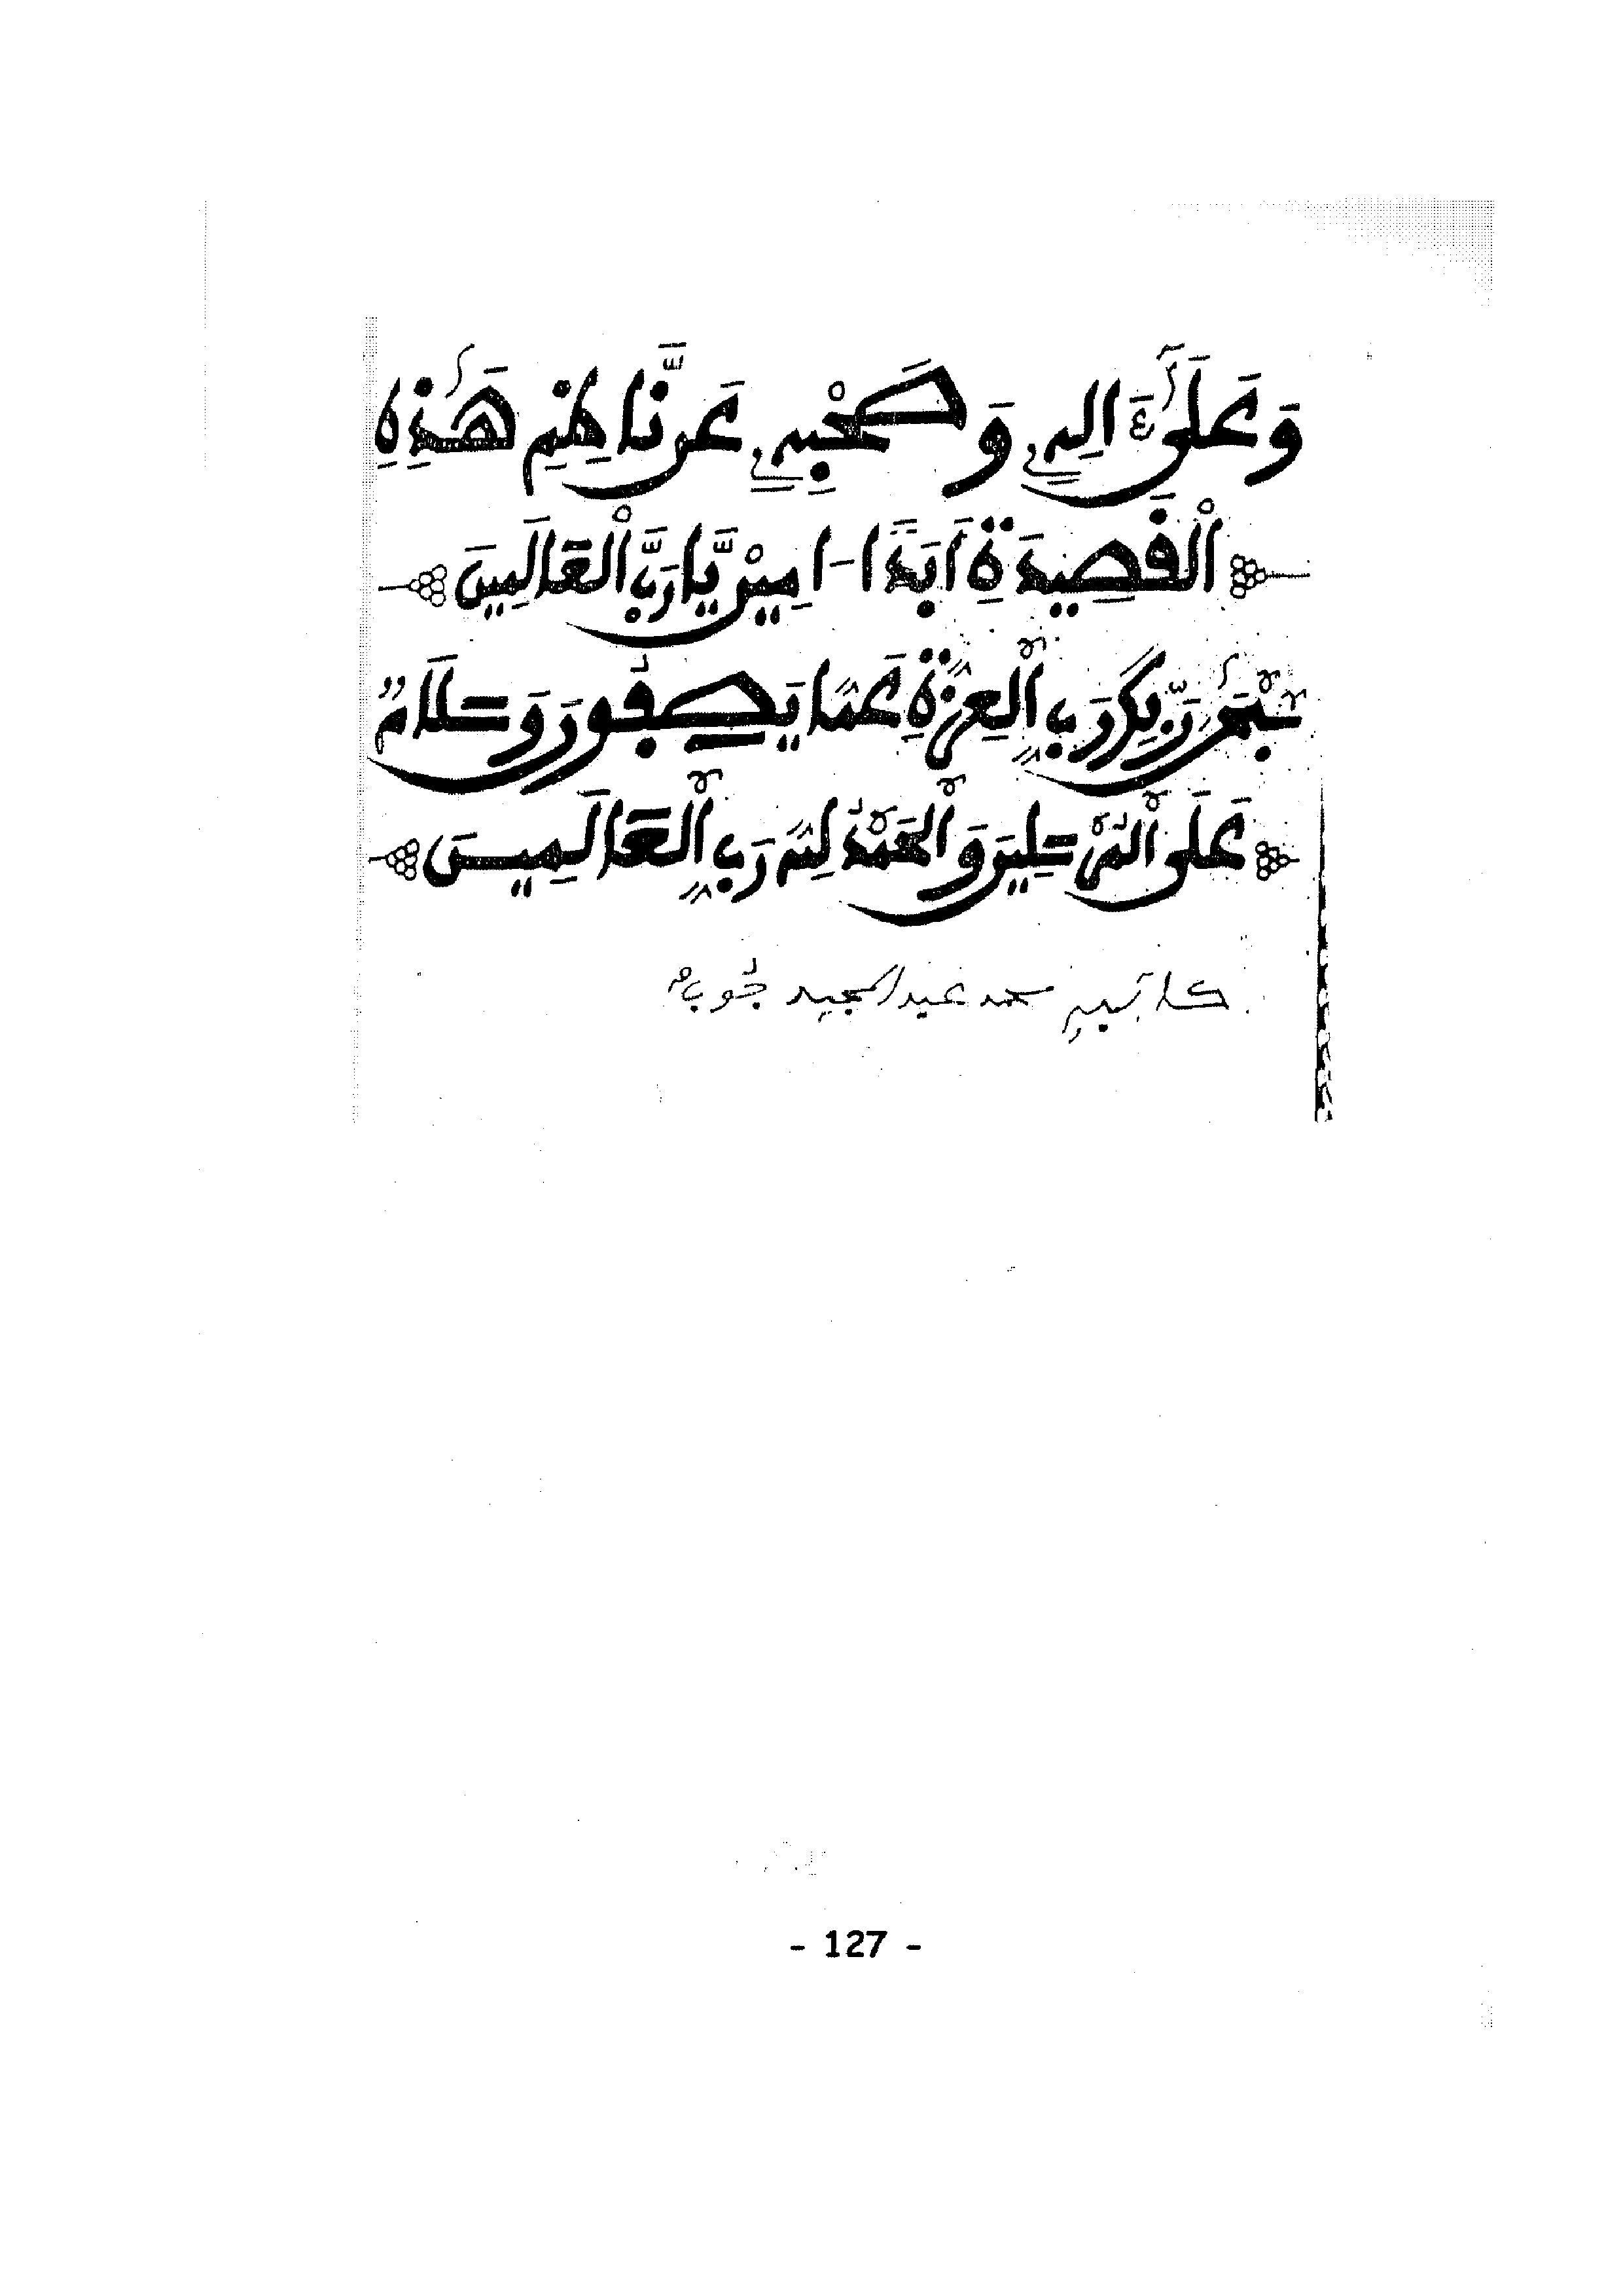 وَعَلَىٰٓ ءَالِهِۦ وَصَحْبِهِۦ عَن نَّاظِمِ هَٰذِهِ
الْقَصِيدَةِ أَبَدًا - اٰمِينْ يَّا رَبَّ الْعَالَمِينَ
سُبْحَٰنَ رَبِّكَ رَبِّ الْعِزَّةِ عَمَّا يَصِفُونَ وَسَلَامٌ
عَلَى الْمُرْسَلِينَ وَالْحَمْدُ لِلَّهِ رَبِّ الْعَالَمِينَ
كاتبه محمد عبد المجيد جُوبْ
- 127 -